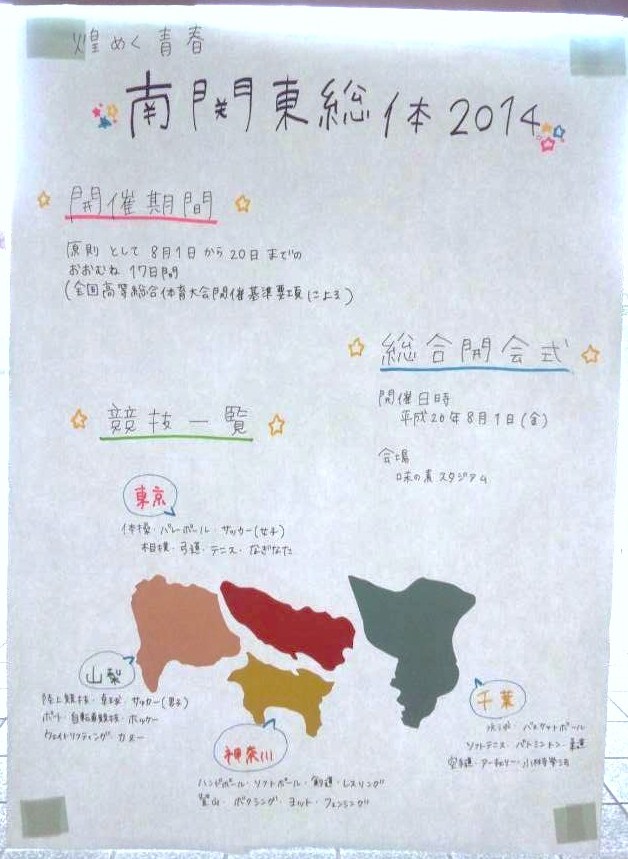 煌めく青春
南関東総体2014
開催期間
原則として8月1日から20日までの
おおむね17日間
(全国高等総合体育大会開催基準要項による)
総合開会式
開催日時
平成26年8月1日(金)
会場
味の素スタジアム
競技一覧
東京
体操・バレーボール・サッカー(女子)
相撲・弓道・テニス・なぎなた
山梨
陸上競技・卓球・サッカー(男子)
ボート・自転車競技・ホッケー
ウェイトリフティング・カヌー
神奈川
ハンドボール・ソフトボール・剣道・レスリング
登山・ボクシング・ヨット・フェンシング
千葉
バスケットボール
ソフトテニス・バドミントン・柔道
空手道・アーチェリー・少林寺拳法